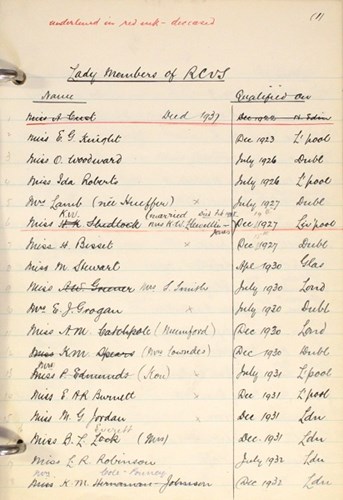 underlined in red ink - deceased
(1)
Lady Members of RCVS
Name Qualified on
Miss A Cust Died 1937 Dec 1922 Edin
Miss E G Knight Dec 1923 L'pool
Miss O. Woodward July 1926 Dubl
Miss Ida Roberts July 1926 L'pool
Mrs Lamb (née Hueffer) x July 1927 Dubl
K.W. (married
Miss Shedlock Mrs K.W. Dec 1927 Liv'pool
Miss H. Bisset x Dec 1927 Dubl
Miss M Stewart Apl 1930 Glas
Miss Mrs S. Smith July 1930 Lond
Mrs E. J. Grogan x July 1930 Dubl
Miss A.M. Catchpole (Mumford) Dec 1930 Lond
Miss K.M. Spears x (Mrs Lowndes) Dec 1930 Dubl
Mrs
Miss P. Edmunds x July 1931 L'pool
Miss E A R Burnett x Dec 1931 L'pool
Miss M. G. Jordan x Dec 1931 Ldn
Everett
Miss B. L. Lock (Mrs) Dec. 1931 Ldn
Miss E. R. Robinson July 1932 Ldn
Mrs
Miss K. M. Johnson Dec 1932 Ldn